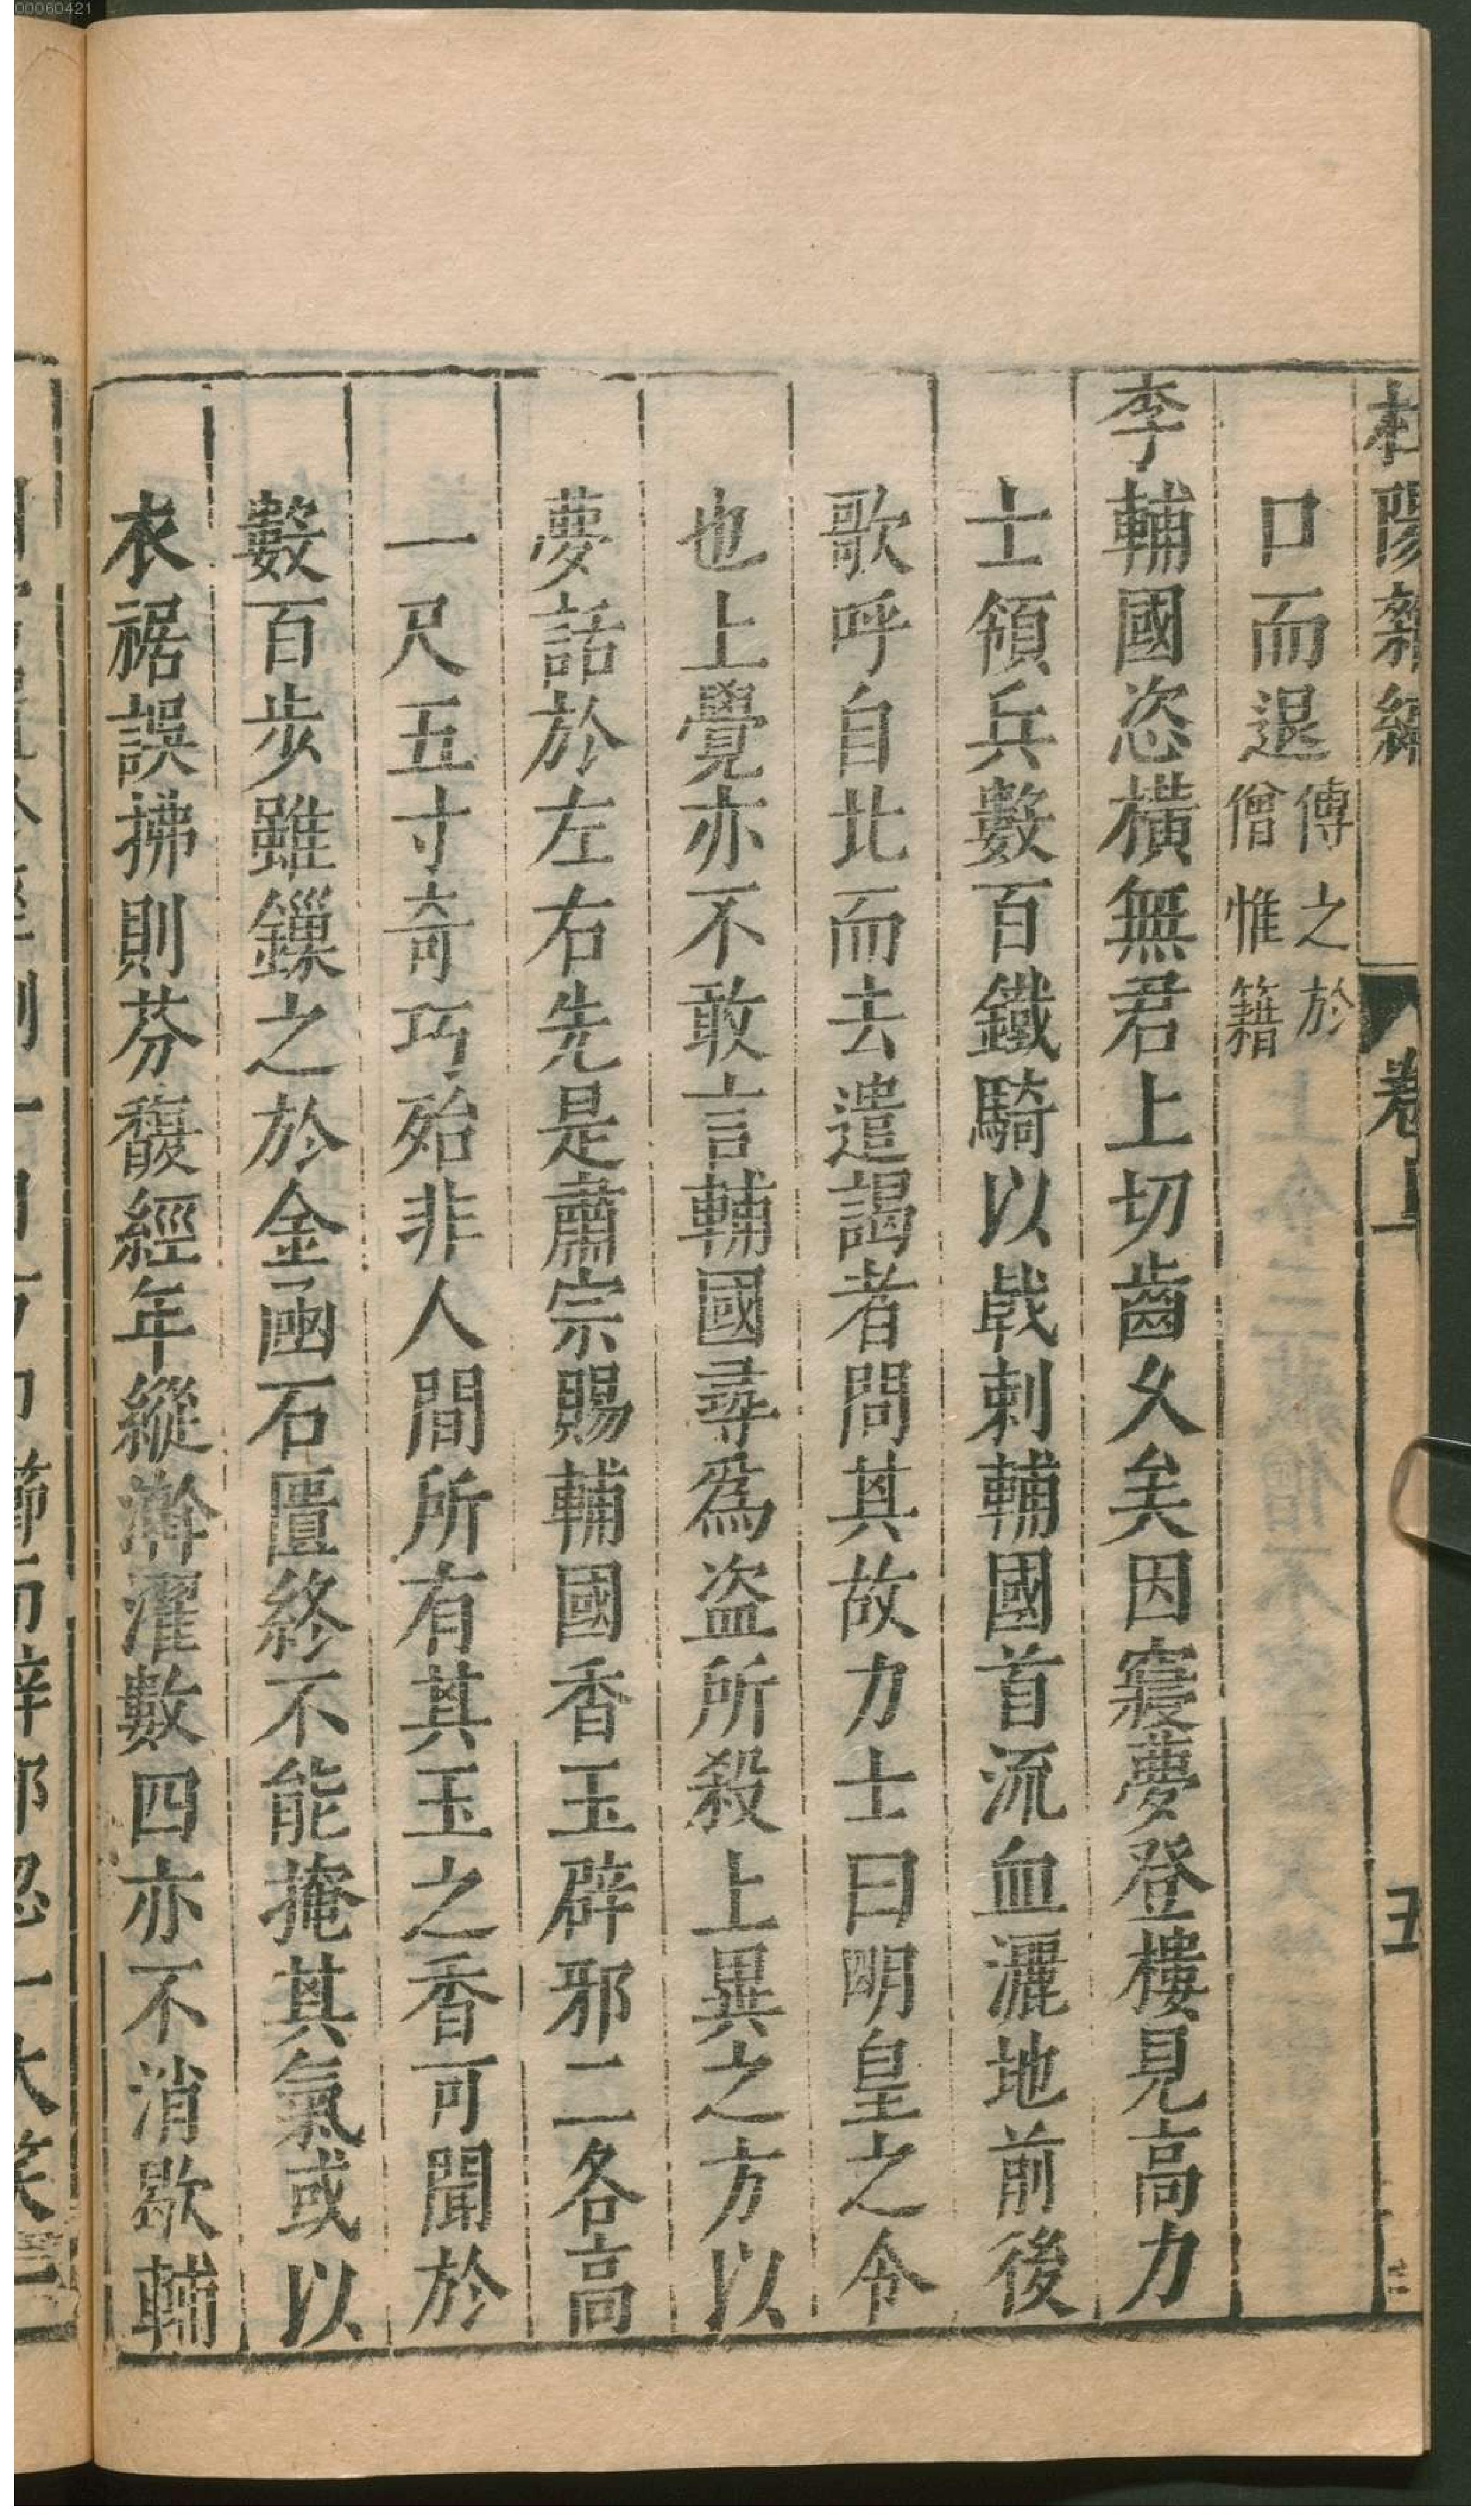 00060421
杜陽雜編 卷上 五
口而退傳之於僧惟籍
李輔國恣橫無君上切齒久矣因寢夢登樓見高力
士領兵數百鐵騎以戟刺輔國首流血灑地前後
歌呼自北而去遣謁者問其故力士曰明皇之令
也上覺亦不敢言輔國尋爲盜所殺上異之方以
夢話於左右先是肅宗賜輔國香玉辟邪二各高
一尺五寸奇巧殆非人間所有其玉之香可聞於
數百步雖鏁之於金函石匱終不能掩其氣或以
衣裾誤拂則芬馥經年縱澣濯數四亦不消歇輔